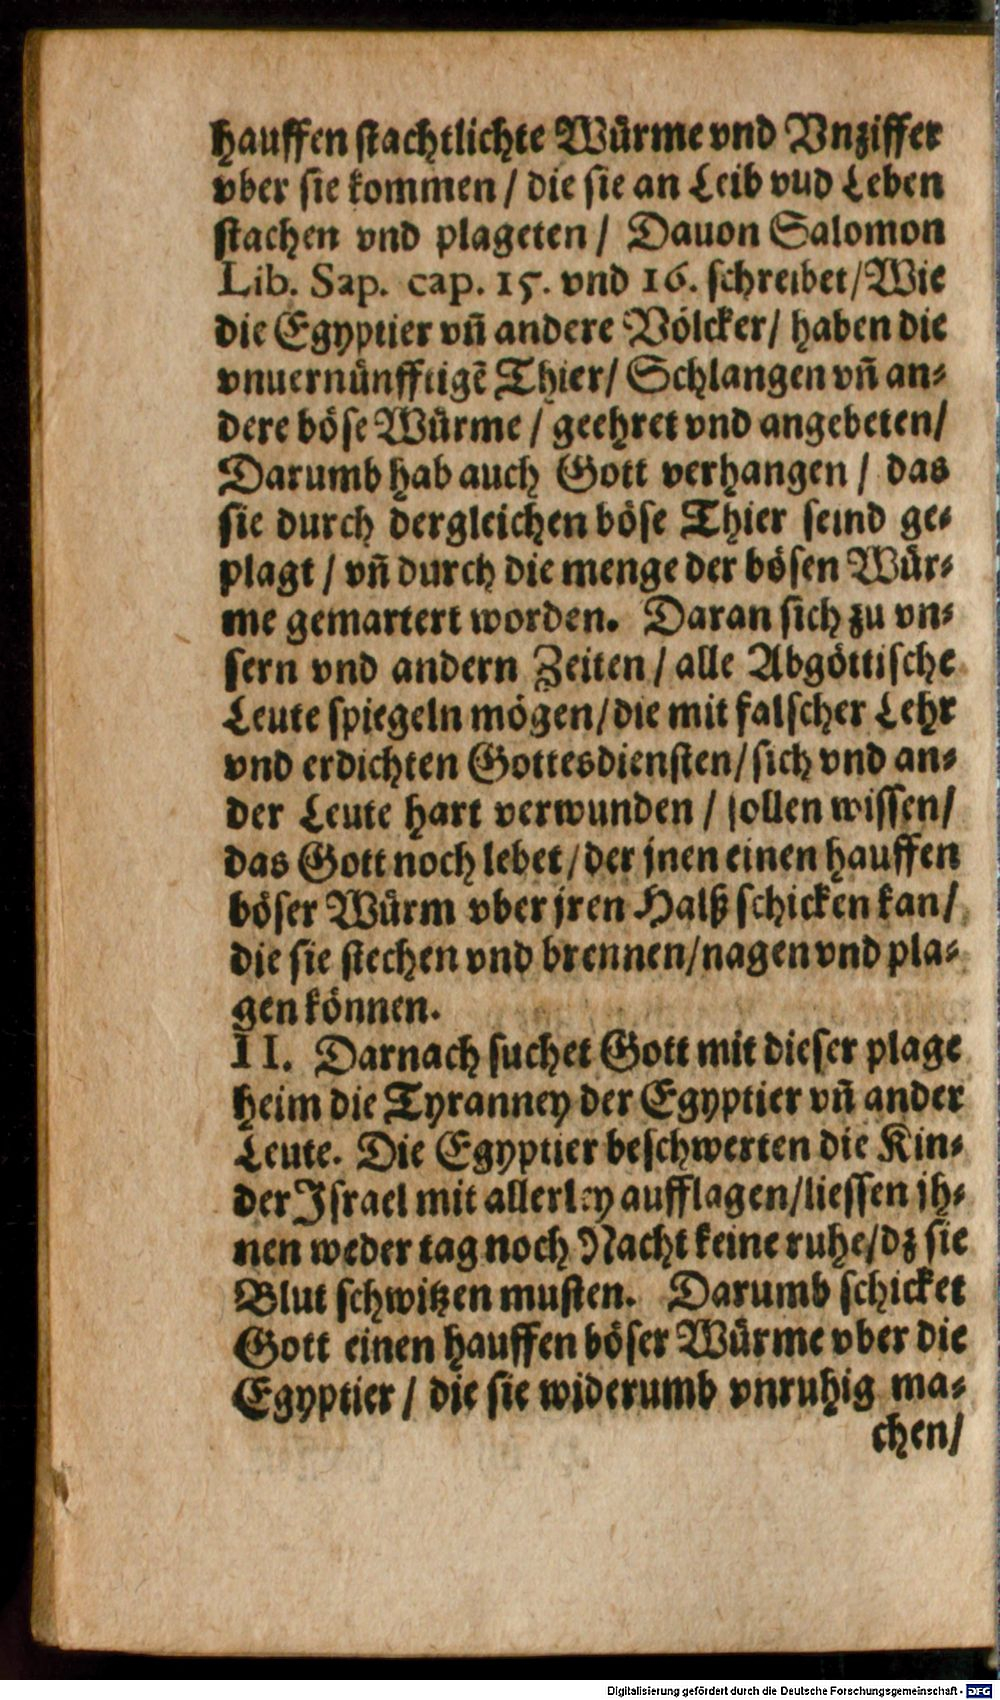 hauffen stachtlichte Würme vnd Vnziffer
vber sie kommen / die sie an Leib vud Leben
stachen vnd plageten / Dauon Salomon
Lib. Sap. cap. 15. vnd 16. schreibet / Wie
die Egyptier vñ andere Völcker / haben die
vnuernünfftigē Thier / Schlangen vñ an-
dere böse Würme / geehret vnd angebeten /
Darumb hab auch Gott verhangen / das
sie durch dergleichen böse Thier seind ge-
plagt / vñ durch die menge der bösen Wür-
me gemartert worden. Daran sich zu vn-
sern vnd andern Zeiten / alle Abgöttische
Leute spiegeln mögen / die mit falscher Lehr
vnd erdichten Gottesdiensten / sich vnd an-
der Leute hart verwunden / sollen wissen /
das Gott noch lebet / der jnen einen hauffen
böser Würm vber jren Halß schicken kan /
die sie stechen vnd brennen / nagen vnd pla-
gen können.
II. Darnach suchet Gott mit dieser plage
heim die Tyranney der Egyptier vñ ander
Leute. Die Egyptier beschwerten die Kin-
der Israel mit allerley aufflagen / liessen jh-
nen weder tag noch Nacht keine ruhe / dz sie
Blut schwitzen musten. Darumb schicket
Gott einen hauffen böser Würme vber die
Egyptier / die sie widerumb vnruhig ma-
chen /
Digitalisierung gefördert durch die Deutsche Forschungsgemeinschaft - DFG